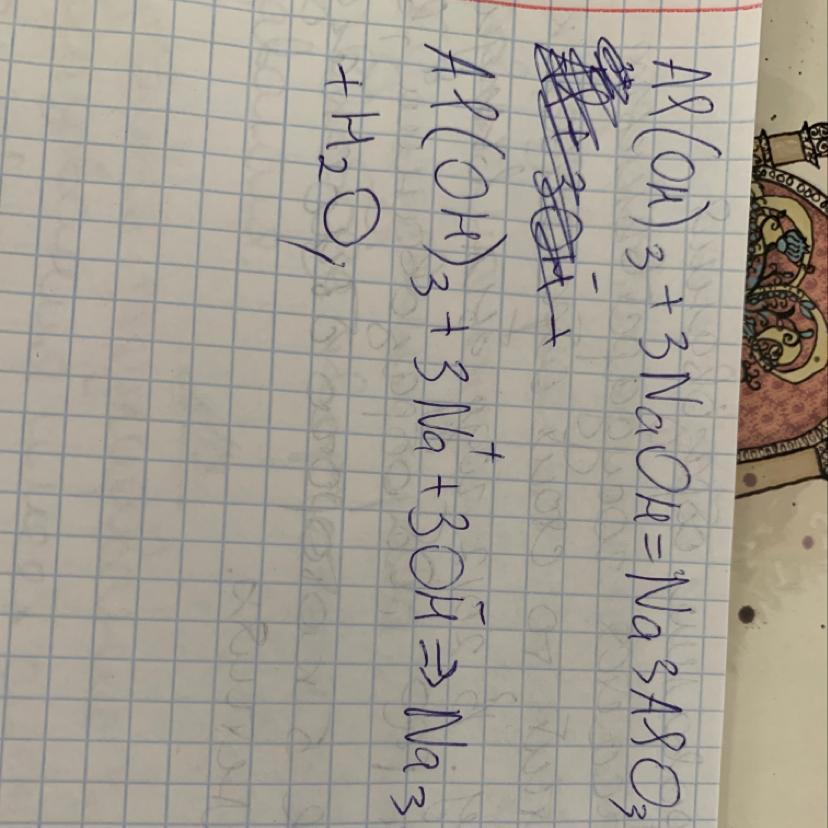 Al(OH)3 + 3NaOH = Na3AlO3
Al(OH)3 + 3Na⁺ + 3OH⁻ ⇒ Na3
+ H2O,